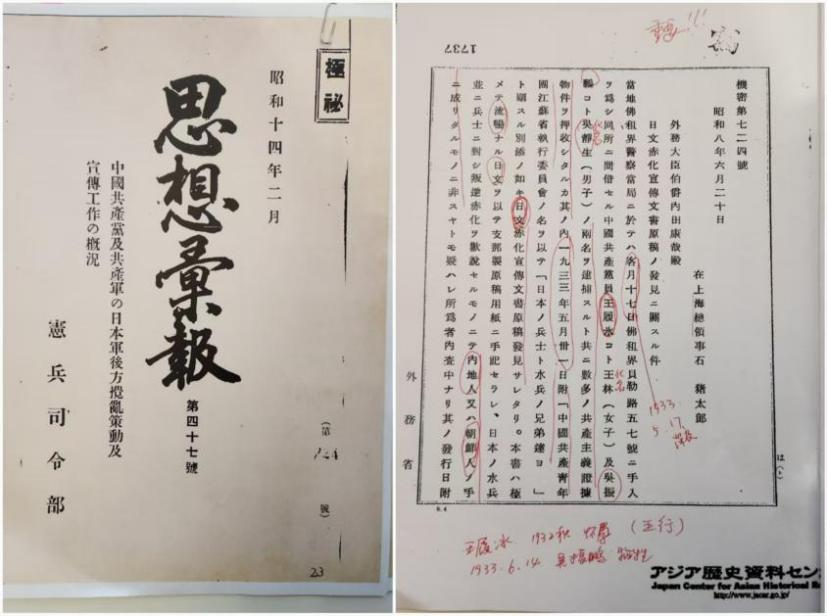 極秘
昭和十四年二月
思想彙報
第四十七號
中國共產黨及共產軍の日本軍後方攪亂策動及
宣傳工作の概況
憲兵司令部
(第 124 號)
23
1737
機密第七二四號
昭和八年六月二十日
在上海總領事 石 猪太郎
外務大臣伯爵内田康哉殿
日文赤化宣傳文書原稿ノ發見ニ關スル件
當地佛租界警察當局ニ於テハ客月十七日佛租界貝勒路五七號ニ手入
ヲ爲シ同所ニ間借セル中國共產黨員王履冰コト王林(女子)及吳振
鵬コト吳靜生(男子)ノ兩名ヲ逮捕スルト共ニ數多ノ共產主義證據
物件ヲ押收シタルカ其ノ内一九三三年五月卅一日附「中國共產青年
團江蘇省執行委員會ノ名ヲ以テ「日本ノ兵士ト水兵ノ兄弟達ヨ」
ト題スル別添ノ如キ日文赤化宣傳文書原稿發見サレタリ。本書ハ極
メテ流暢ナル日文ヲ以テ支那製原稿用紙ニ手記セラレ、日本ノ水兵
並ニ兵士ニ對シ叛逆赤化ヲ歡說セルモノニテ内地人又ハ朝鮮人ノ手
ニ成リタルモノニ非スヤトモ疑ハレ所爲者内査中ナリ其ノ發行日附
化名
化名
1933.
5.17.
外務省
王履冰 1932秋
1933.6.14 吳振鵬 犧牲
アジア歴史資料セン
Japan Center for Asian Historical R
http://www.jacar.go.jp/